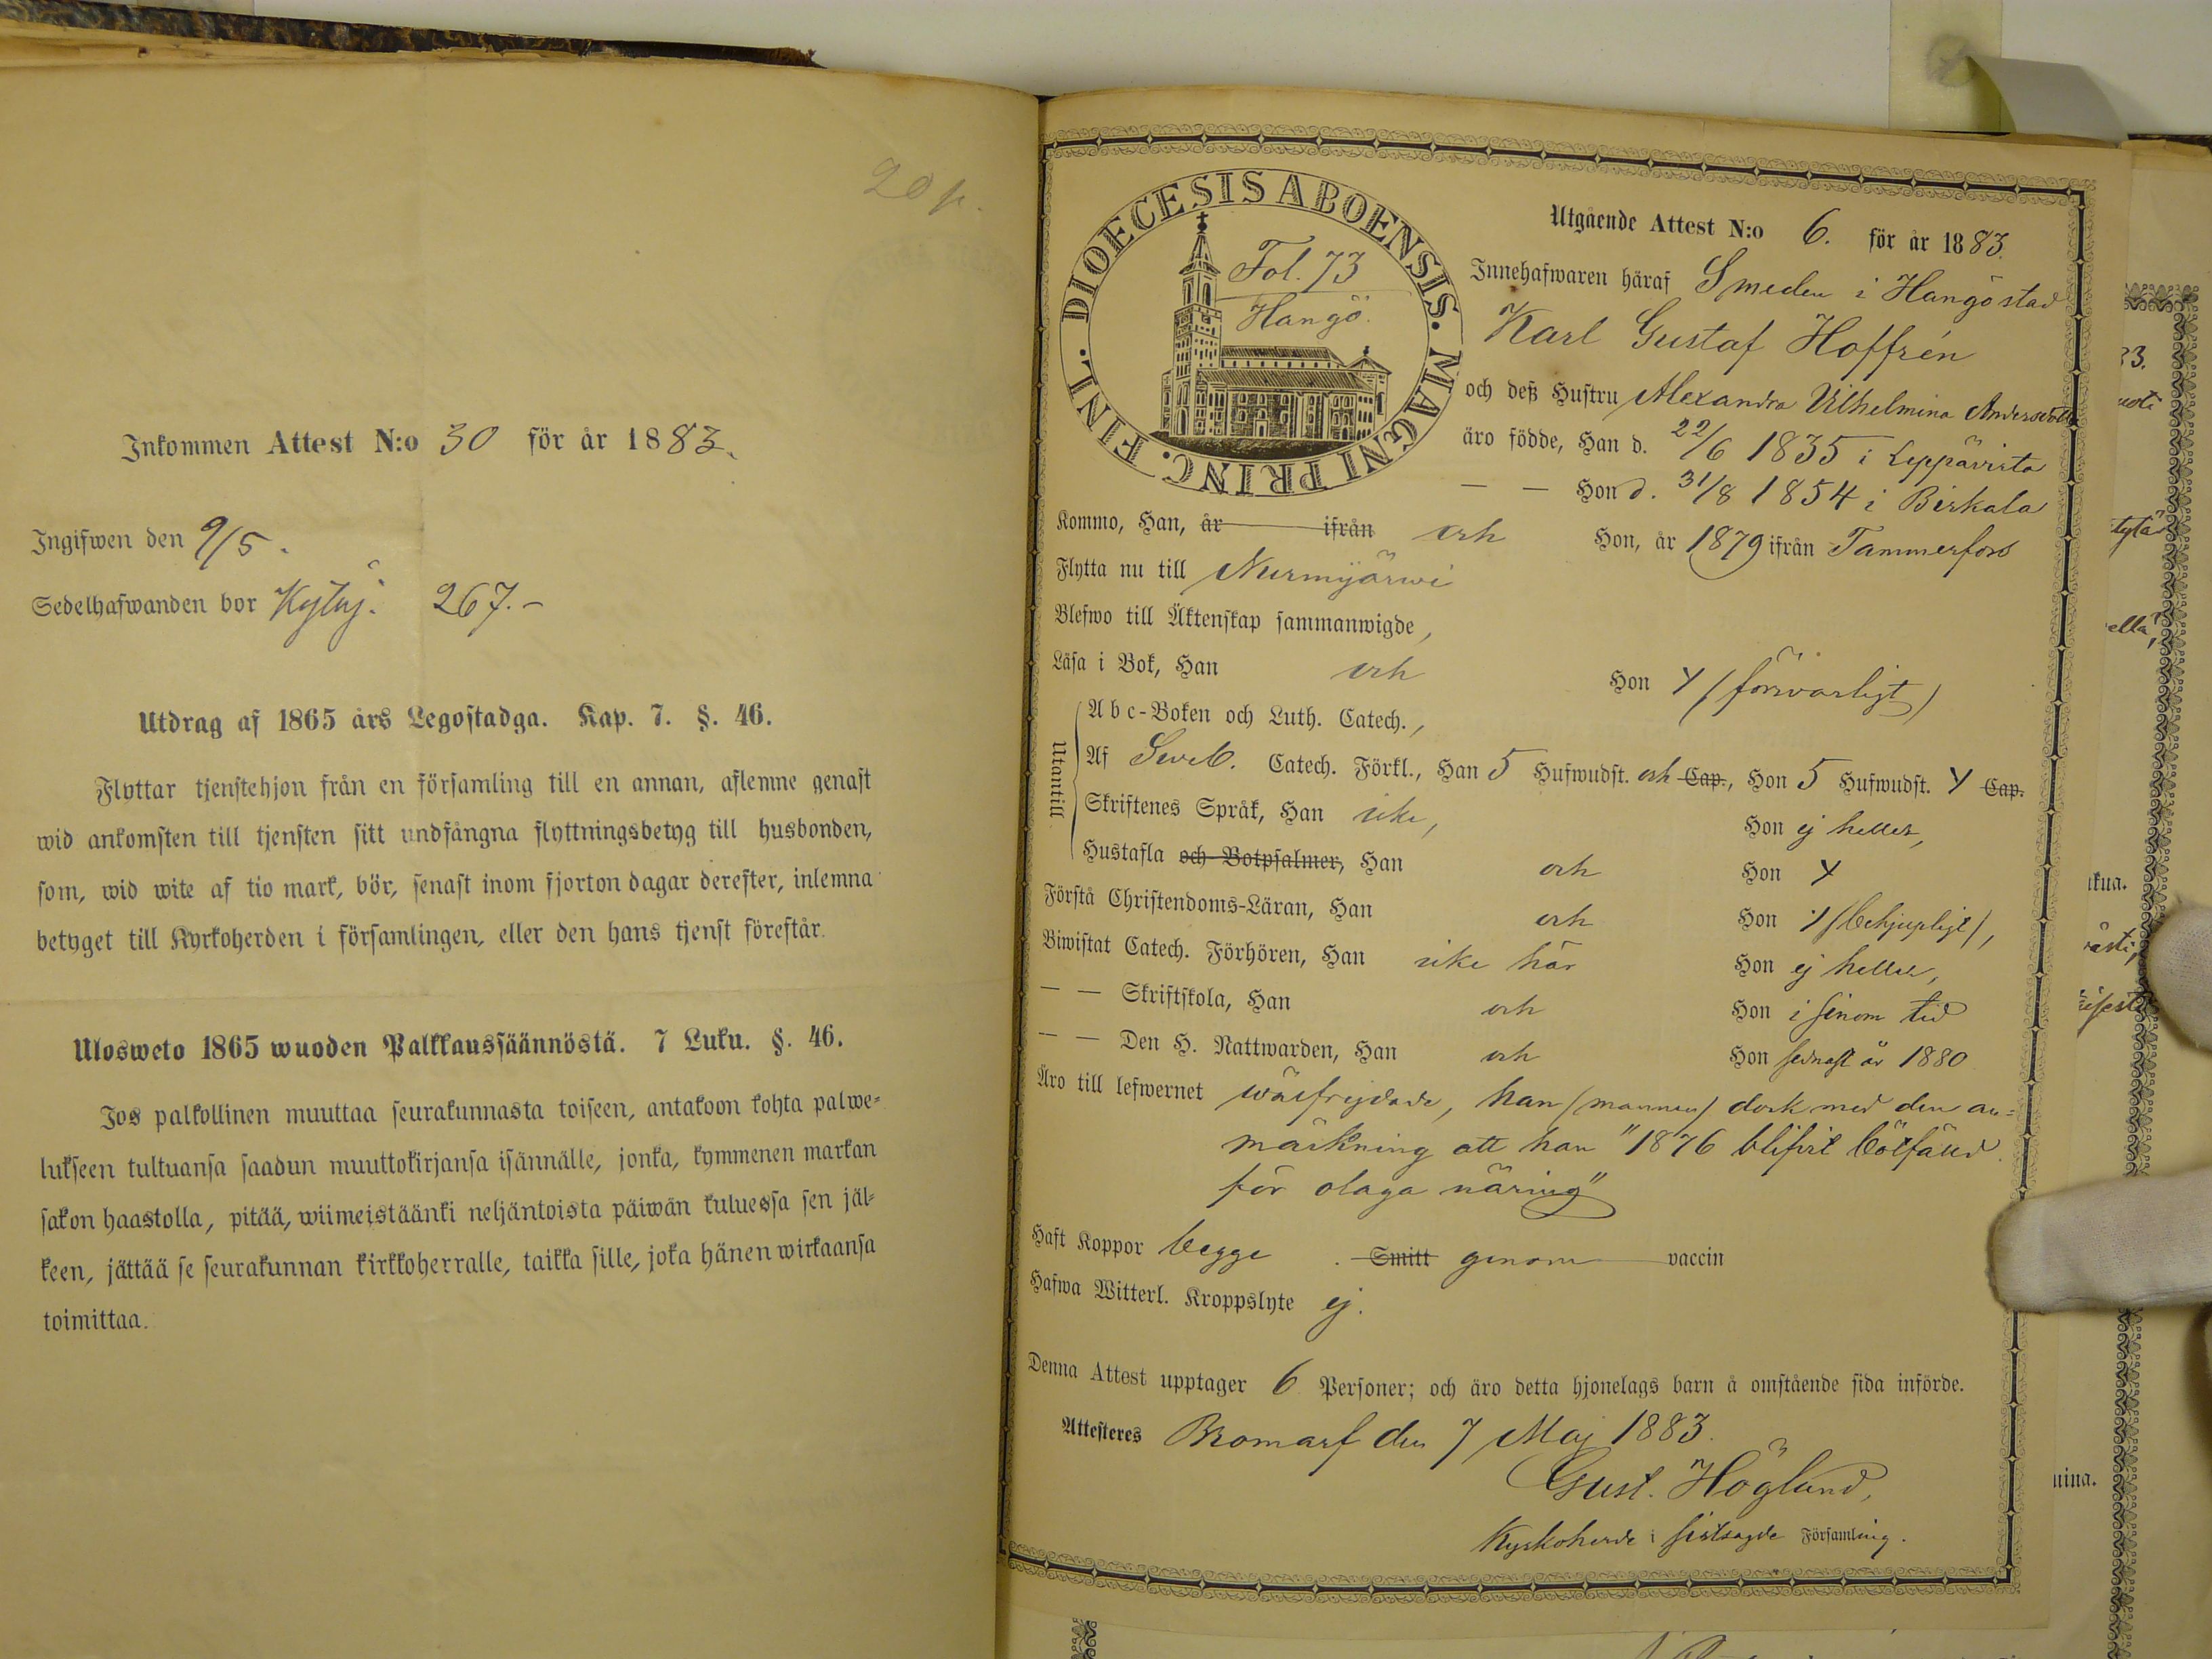 20 p.
Inkommen Attest N:o 30 för år 1883.
Ingifwen den 9/5.
Sedelhafwanden bor Kytäj. 267.-
Utdrag af 1865 års Legostadga. Kap. 7. §. 46.
Flyttar tjenstehjon från en församling till en annan, aflemne genast
wid ankomsten till tjensten sitt undfångna flyttningsbetyg till husbonden,
som, wid wite af tio mark, bör, senast inom fjorton dagar derefter, inlemna
betyget till Kyrkoherden i församlingen, eller den hans tjenst förestår.
Ulosweto 1865 wuoden Palkkaussäännöstä. 7 Luku. §. 46.
Jos palkollinen muuttaa seurakunnasta toiseen, antakoon kohta palwe=
lukseen tultuansa saadun muuttokirjansa isännälle, jonka, kymmenen markan
sakon haastolla, pitää, wiimeistäänki neljäntoista päiwän kuluessa sen jäl=
keen, jättää se seurakunnan kirkkoherralle, taikka sille, joka hänen wirkaansa
toimittaa.
DIOECESIS ABOENSIS. MAGNI PRINC. FINL.
Fol. 73
Hangö.
Utgående Attest N:o 6. för år 1883.
Innehafwaren häraf Smeden i Hangö stad
Karl Gustaf Hoffrén
och deß Hustru Alexandra Vilhelmina Andersdotter
äro födde, Han d. 22/6 1835 i Leppävirta
— — Hon d. 31/8 1854 i Birkala
Kommo, Han, år ifrån och Hon, år 1879 ifrån Tammerfors
Flytta nu till Nurmijärwi
Blefwo till Äktenskap sammanwigde,
Läsa i Bok, Han och Hon y (försvarligt)
Utantill
Abc-Boken och Luth. Catech.,
Af Sveb. Catech. Förkl., Han 5 Hufwudst. och Cap., Hon 5 Hufwudst. y Cap.
Skriftenes Språk, Han icke, Hon ej heller,
Hustafla och Botpsalmer, Han och Hon y
Förstå Christendoms-Läran, Han och Hon y (behjepligt),
Biwistat Catech. Förhören, Han icke här Hon ej heller,
— — Skriftskola, Han och Hon i sinom tid
— — Den H. Nattwarden, Han och Hon sednast år 1880
Äro till lefwernet wälfrejdade, han (mannen) dock med den an=
märkning att han "1876 blifvit bötfälld
för olaga näring"
Haft Koppor begge. Smitt genom vaccin
Hafwa Witterl. Kroppslyte ej.
Denna Attest upptager 6 Personer; och äro detta hjonelags barn å omstående sida införde.
Attesteres Bromarf den 7 Maj 1883.
Gust. Höglund,
Kyrkoherde i sistsagde Församling.